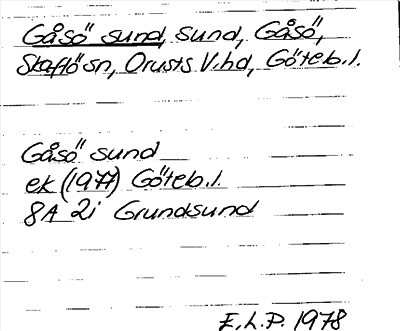 Gåsö sund, sund, Gåsö,
Skaftö sn, Orusts V.hd, Göteb.l.
Gåsö sund
ek (1977) Göteb.l.
8A 2i Grundsund
E.L.P. 1978